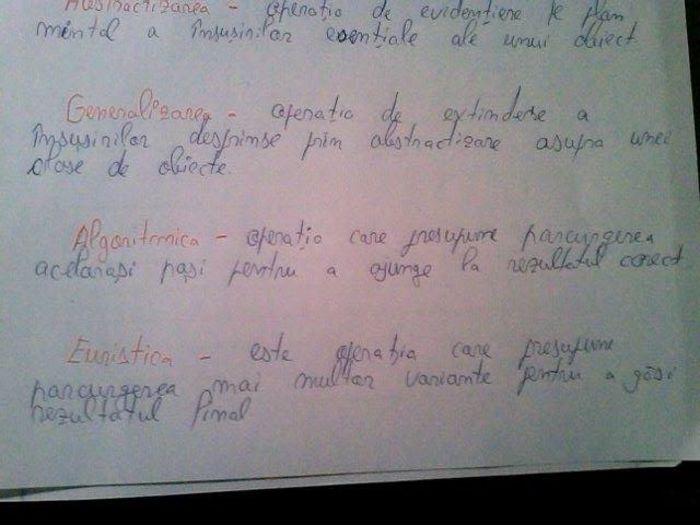 Abstractizarea - operația de evidențiere pe plan
mental a însușirilor esențiale ale unui obiect
Generalizarea - operația de extindere a
însușirilor desprinse prin abstractizare asupra unei
clase de obiecte.
Algoritmica - operația care presupune parcurgerea
acelorași pași pentru a ajunge la rezultatul corect
Euristica - este operația care presupune
parcurgerea mai multor variante pentru a găsi
rezultatul final